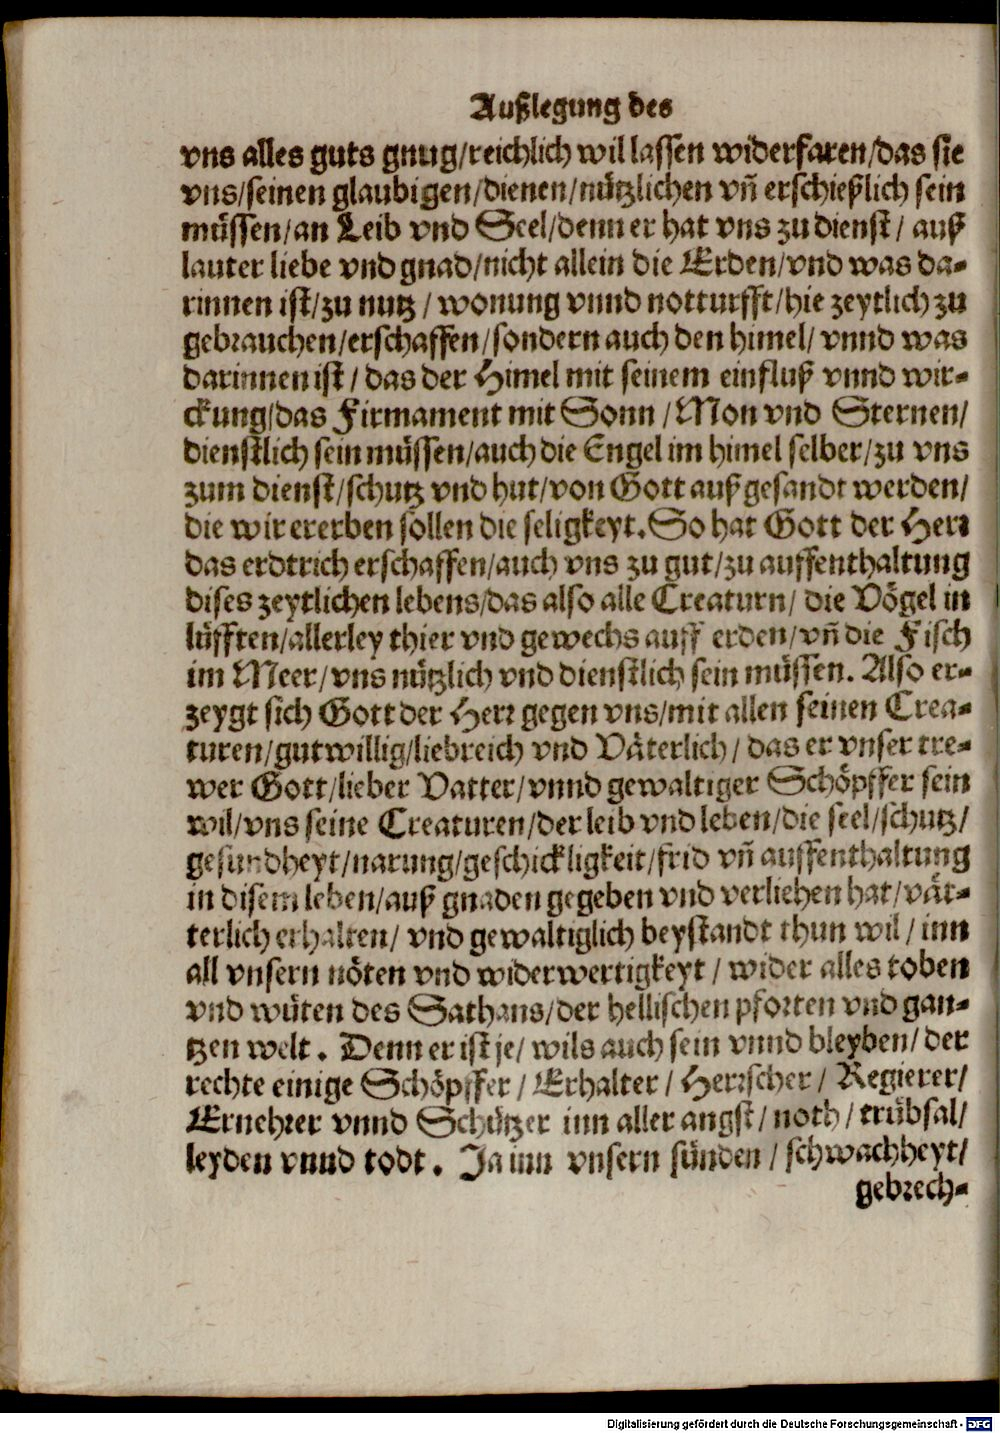 Außlegung des
vns alles guts gnug/reichlich wil lassen widerfaren/das sie
vns/seinen glaubigen/dienen/nützlichen vñ erschießlich sein
müssen/an Leib vnd Seel/denn er hat vns zu dienst/ auß
lauter liebe vnd gnad/nicht allein die Erden/vnd was da-
rinnen ist/zu nutz / wonung vnnd notturfft/hie zeytlich zu
gebrauchen/erschaffen/sondern auch den himel/ vnnd was
darinnen ist / das der Himel mit seinem einfluß vnnd wir-
ckung/das Firmament mit Sonn / Mon vnd Sternen/
dienstlich sein müssen/auch die Engel im himel selber/zu vns
zum dienst/schutz vnd hut/von Gott auß gesandt werden/
die wir ererben sollen die seligkeyt. So hat Gott der Herr
das erdtrich erschaffen/auch vns zu gut/zu auffenthaltung
dises zeytlichen lebens/das also alle Creaturn/ die Vögel in
lüfften/allerley thier vnd gewechs auff erden/vñ die Fisch
im Meer/vns nützlich vnd dienstlich sein müssen. Also er-
zeygt sich Gott der Herr gegen vns/mit allen seinen Crea-
turen/gutwillig/liebreich vnd Väterlich / das er vnser tre-
wer Gott/lieber Vatter/vnnd gewaltiger Schöpffer sein
wil/vns seine Creaturen/der leib vnd leben/die seel/schutz/
gesundheyt/narung/geschickligkeit/frid vñ auffenthaltung
in disem leben/auß gnaden gegeben vnd verliehen hat/vät-
terlich erhalten/ vnd gewaltiglich beystandt thun wil / inn
all vnsern nöten vnd widerwertigkeyt / wider alles toben
vnd wüten des Sathans/der hellischen pforten vnd gan-
tzen welt . Denn er ist je/ wils auch sein vnnd bleyben/ der
rechte einige Schöpffer / Erhalter / Herrscher / Regierer/
Ernehrer vnnd Schützer inn aller angst / noth / trübsal/
leyden vnnd todt . Ja inn vnsern sünden / schwachheyt/
gebrech-
Digitalisierung gefördert durch die Deutsche Forschungsgemeinschaft - DFG